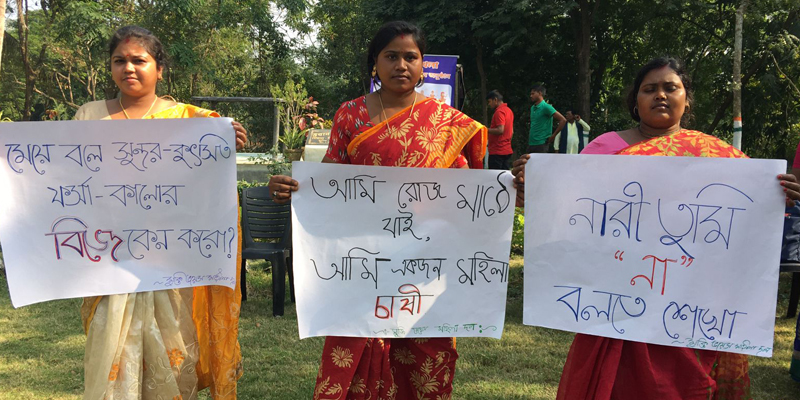 মেয়ে বলে সুন্দর-কুৎসিত
ফর্সা-কালোর
বিভেদ কেন করো?
আমি রোজ মাঠে
যাই,
আমি একজন মহিলা
চাষী
নারী তুমি
"না"
বলতে শেখো